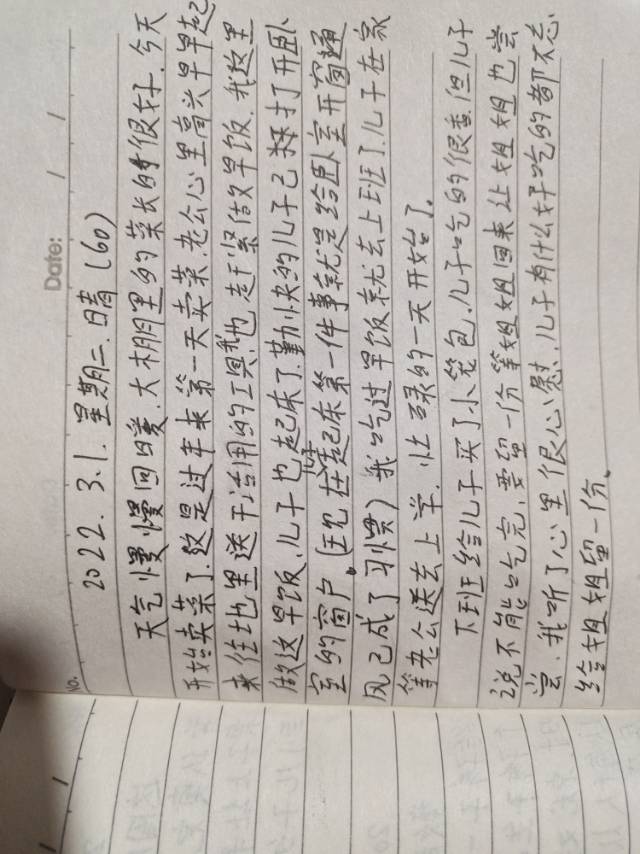 No.
Date: / /
2022.3.1.星期二.晴(60)
天气慢慢回暖.大棚里的菜长的很好.今天
开始卖菜了.这是过年来第一天卖菜.老公心里高兴早早起
来往地里送干活用的工具.我也赶紧做早饭.我这里
做这早饭.儿子也起床了.勤快的儿子己打开卧
室的窗户。(现在起床第一件事就是给卧室开窗通
风己成了习惯)我吃过早饭就去上班了.儿子在家
等老公送去上学.忙碌的一天开始了。
下班给儿子买了小笼包.儿子吃的很香但儿子
说不能吃完,要留一份等姐姐回来让姐姐也尝
尝.我听了心里很心慰、儿子有什么好吃的都不忘
给姐姐留一份。